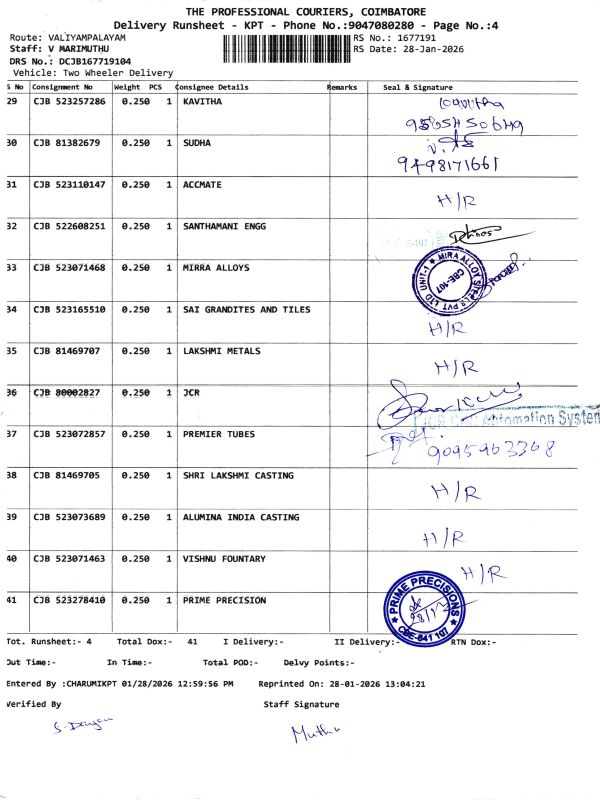 THE PROFESSIONAL COURIERS, COIMBATORE
Delivery Runsheet - KPT - Phone No.:9047080280 - Page No.:4
Route: VALIYAMPALAYAM RS No.: 1677191
Staff: V MARIMUTHU RS Date: 28-Jan-2026
DRS No.: DCJB167719104
Vehicle: Two Wheeler Delivery
S No Consignment No Weight PCS Consignee Details Remarks Seal & Signature
29 CJB 523257286 0.250 1 KAVITHA
30 CJB 81382679 0.250 1 SUDHA
9498171661
31 CJB 523110147 0.250 1 ACCMATE H/R
32 CJB 522608251 0.250 1 SANTHAMANI ENGG
33 CJB 523071468 0.250 1 MIRRA ALLOYS UNIT-1 MIRA ALLOY STEELS PVT LTD CBE-107
34 CJB 523165510 0.250 1 SAI GRANDITES AND TILES H/R
35 CJB 81469707 0.250 1 LAKSHMI METALS H/R
36 CJB 80002827 0.250 1 JCR
Automation System
37 CJB 523072857 0.250 1 PREMIER TUBES 9095463368
38 CJB 81469705 0.250 1 SHRI LAKSHMI CASTING H/R
39 CJB 523073689 0.250 1 ALUMINA INDIA CASTING H/R
40 CJB 523071463 0.250 1 VISHNU FOUNTARY H/R
41 CJB 523278410 0.250 1 PRIME PRECISION PRIME PRECISIONS CBE-641 107
Tot. Runsheet:- 4 Total Dox:- 41 I Delivery:- II Delivery:- RTN Dox:-
Out Time:- In Time:- Total POD:- Delvy Points:-
Entered By :CHARUMIKPT 01/28/2026 12:59:56 PM Reprinted On: 28-01-2026 13:04:21
Verified By Staff Signature
Muthu